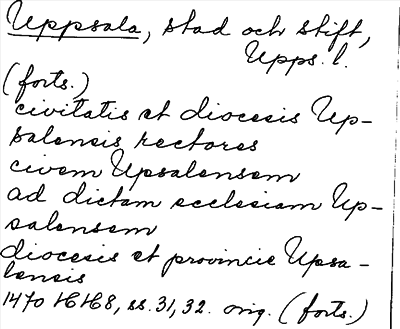 Uppsala, stad och stift,
Upps. l.
(forts.)
civitatis et diocesis Up-
salensis rectores
civem Upsalensem
ad dictam ecclesiam Up-
salensem
diocesis et provincie Upsa-
lensis
1470 16/68, ss. 31, 32. orig. (forts.)